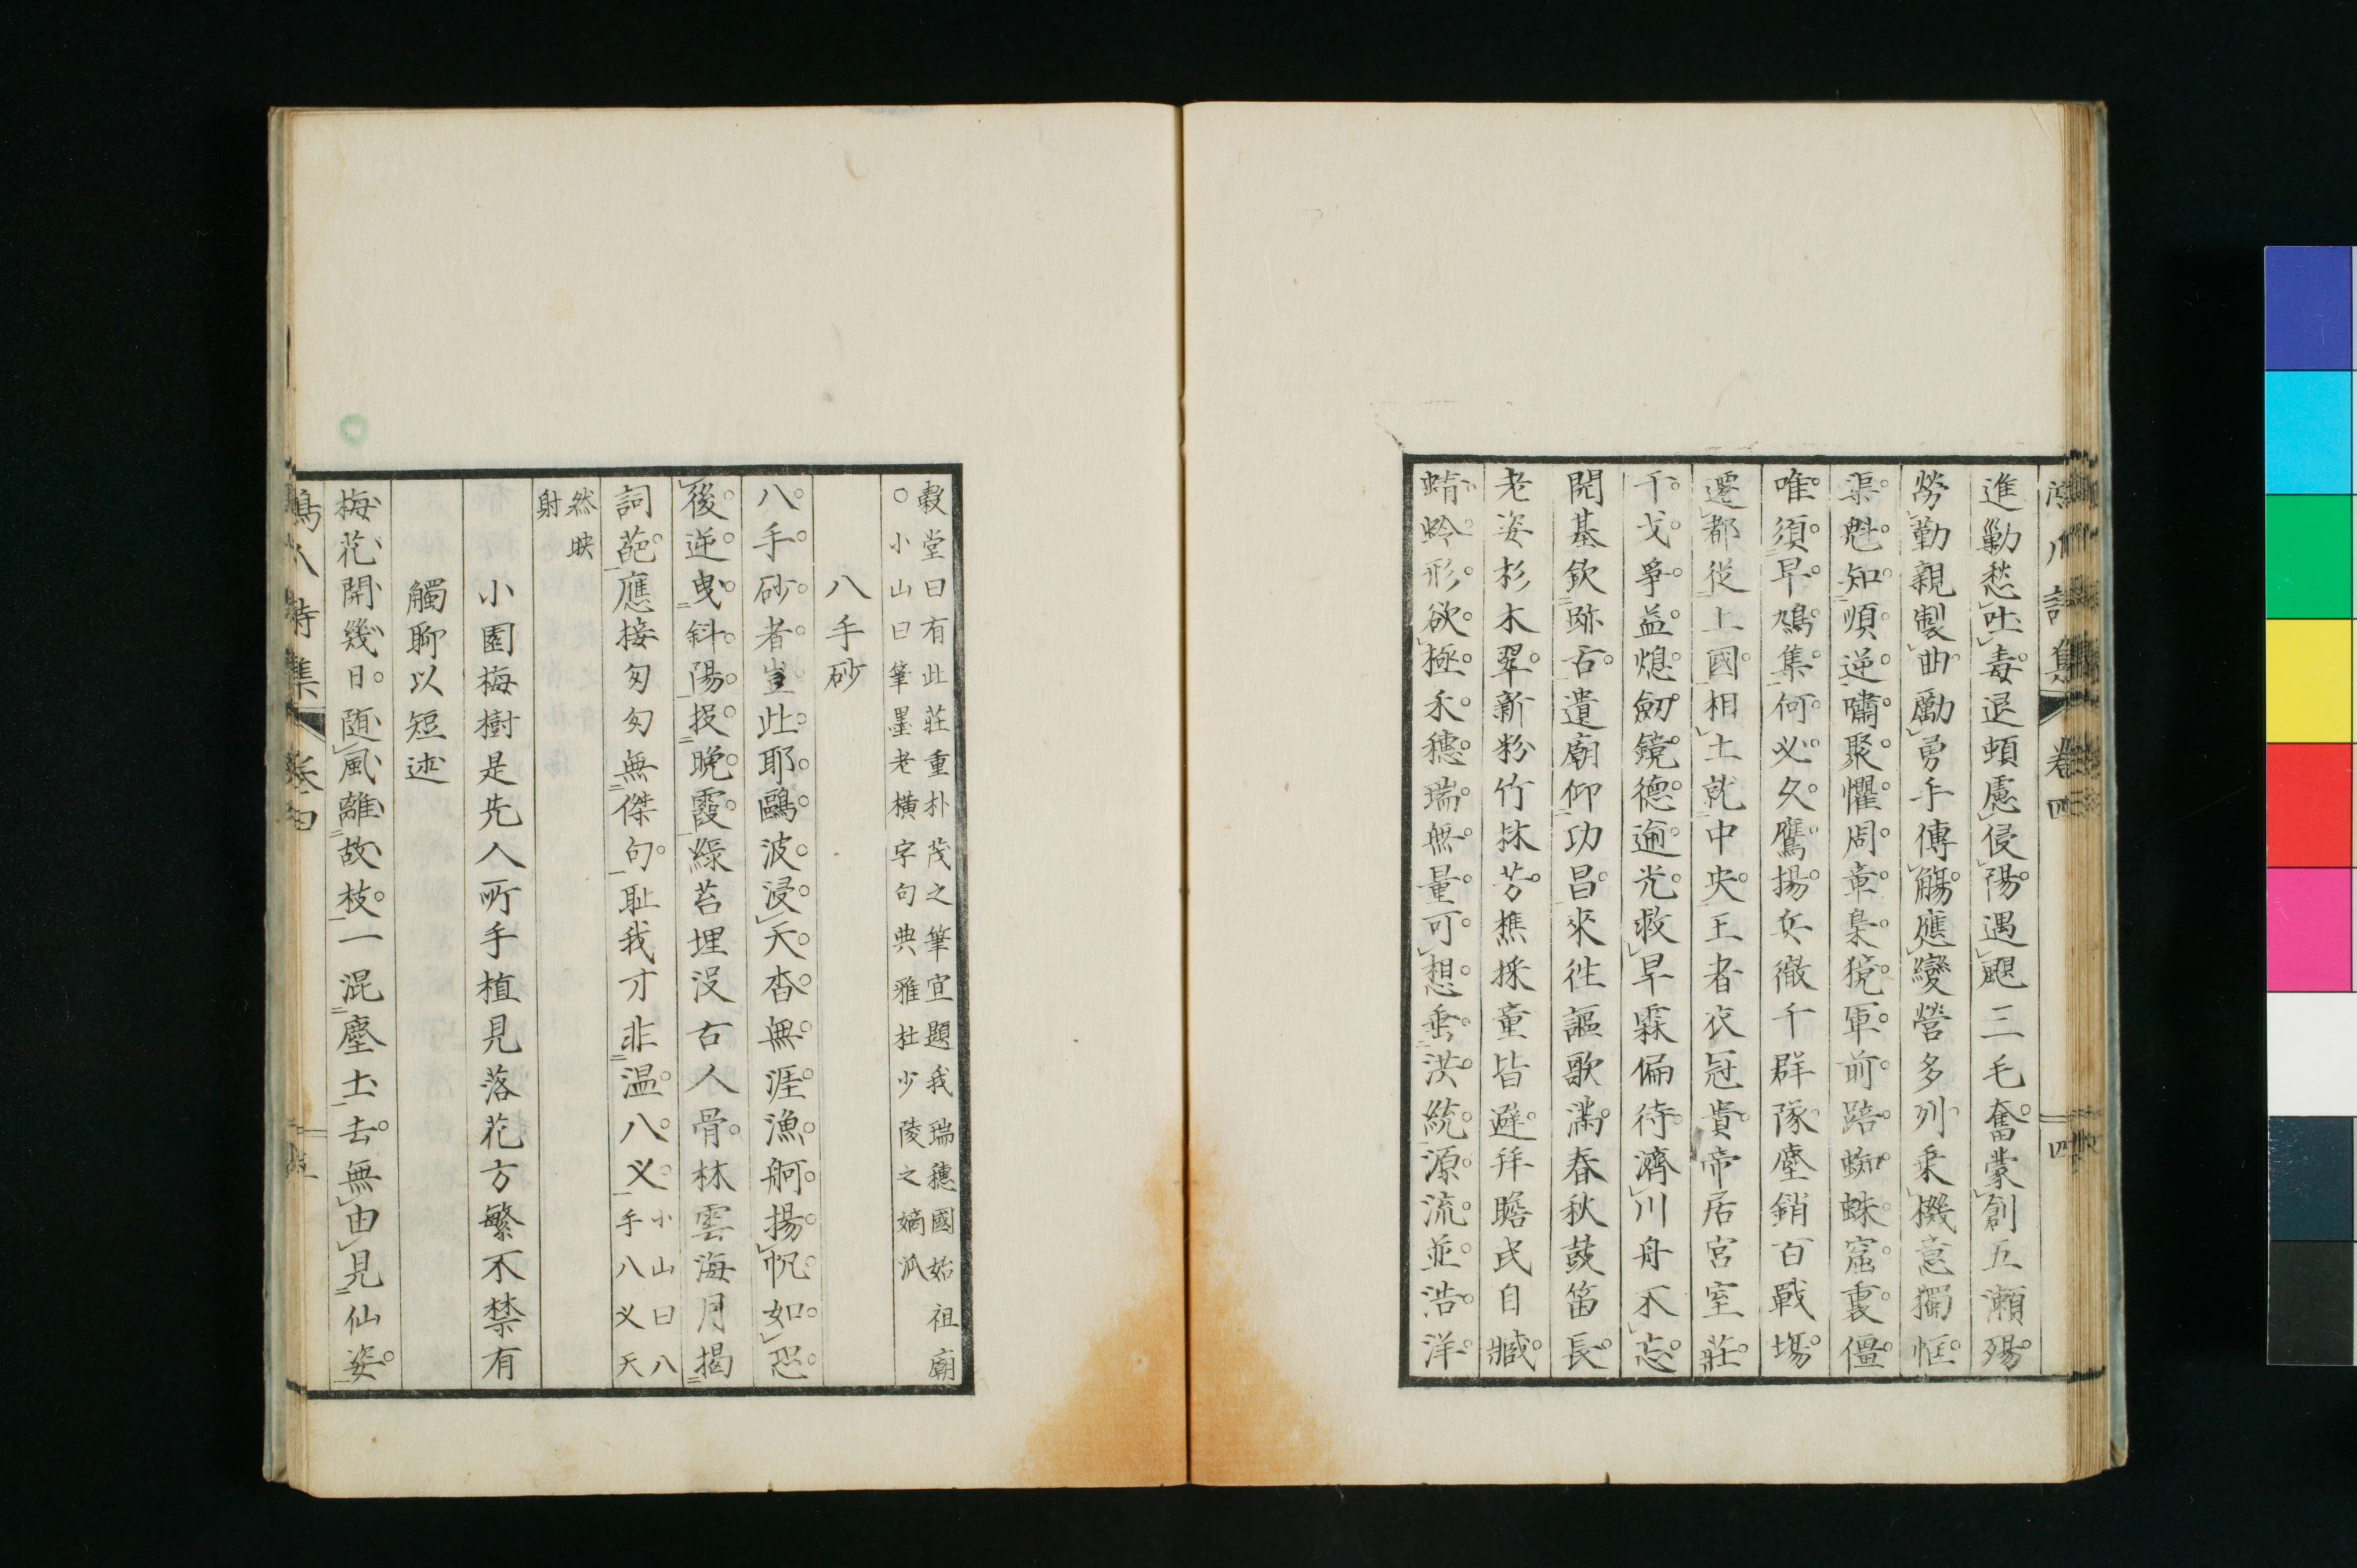 進勦愁吐毒退頓慮侵陽遇颶三毛奮蒙創五瀨殤
勞勤親製曲勵勇手傳觴應變營多列乗機意獨恇
渠魁知順逆嘯聚懼周章梟獍軍前踣蜘蛛窟裏僵
唯須早鳩集何必久鷹揚兵徹千群隊塵銷百戰場
遷都從上國相土就中央王者衣冠貴帝居宮室莊
干戈爭益熄劒鏡德逾光救旱霖偏待濟川舟不忘
開基欽跡古遺廟仰功昌來往謳歌滿春秋鼓笛長
老姿杉木翠新粉竹抹芳樵採童皆避拜瞻民自臧
蜻蛉形欲極禾穗瑞無量可想垂洪統源流並浩洋
卷四
四
穀堂曰有此莊重朴茂之筆宜題我瑞穗國始祖廟
○小山曰筆墨老橫字句典雅杜少陵之嫡派
八手砂
八手砂者豈此耶鷗波浸天杳無涯漁舸揚帆如恐
後逆曳斜陽投晚霞綠苔埋沒古人骨林雲海月揭
詞葩應接匆匆無傑句耻我才非温八义
小山曰八
手八义天
然映
射
小園梅樹是先人所手植見落花方繁不禁有
觸聊以短述
梅花開幾日随風離故枝一混塵土去無由見仙姿